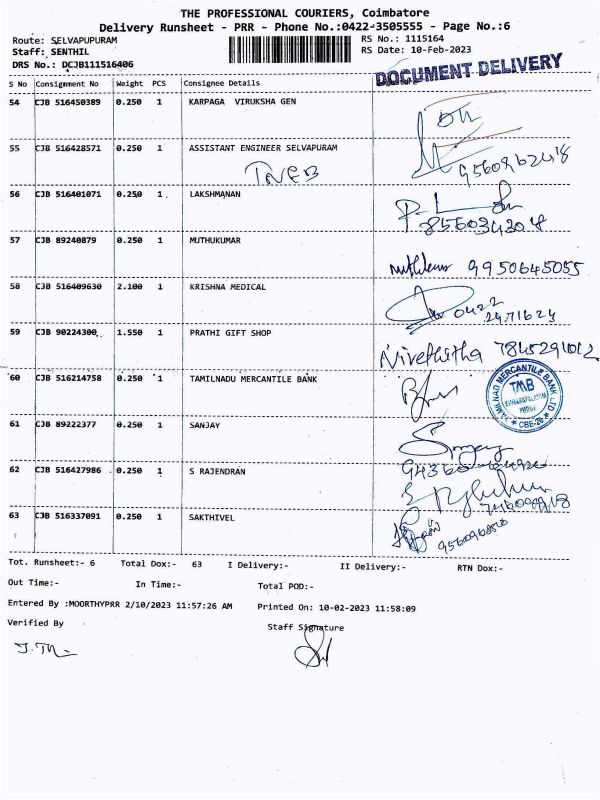 THE PROFESSIONAL COURIERS, Coimbatore
Delivery Runsheet - PRR - Phone No.:0422-3505555 - Page No.:6
Route: SELVAPUPURAM RS No.: 1115164
Staff: SENTHIL RS Date: 10-Feb-2023
DRS No.: DCJB111516406
DOCUMENT DELIVERY
S No Consignment No Weight PCS Consignee Details Signature
54 CJB 516450389 0.250 1 KARPAGA VIRUKSHA GEN
55 CJB 516428571 0.250 1 ASSISTANT ENGINEER SELVAPURAM
TNEB
56 CJB 516401071 0.250 1 LAKSHMANAN
57 CJB 89240879 0.250 1 MUTHUKUMAR
9950645055
58 CJB 516409630 2.100 1 KRISHNA MEDICAL
0422
2471624
59 CJB 90224300 1.550 1 PRATHI GIFT SHOP
Nivethitha
60 CJB 516214758 0.250 1 TAMILNADU MERCANTILE BANK
TAMILNAD MERCANTILE BANK LTD
TMB
CBE-26
61 CJB 89222377 0.250 1 SANJAY
62 CJB 516427986 0.250 1 S RAJENDRAN
63 CJB 516337091 0.250 1 SAKTHIVEL
Tot. Runsheet:- 6 Total Dox:- 63 I Delivery:- II Delivery:- RTN Dox:-
Out Time:- In Time:- Total POD:-
Entered By :MOORTHYPRR 2/10/2023 11:57:26 AM Printed On: 10-02-2023 11:58:09
Verified By Staff Signature